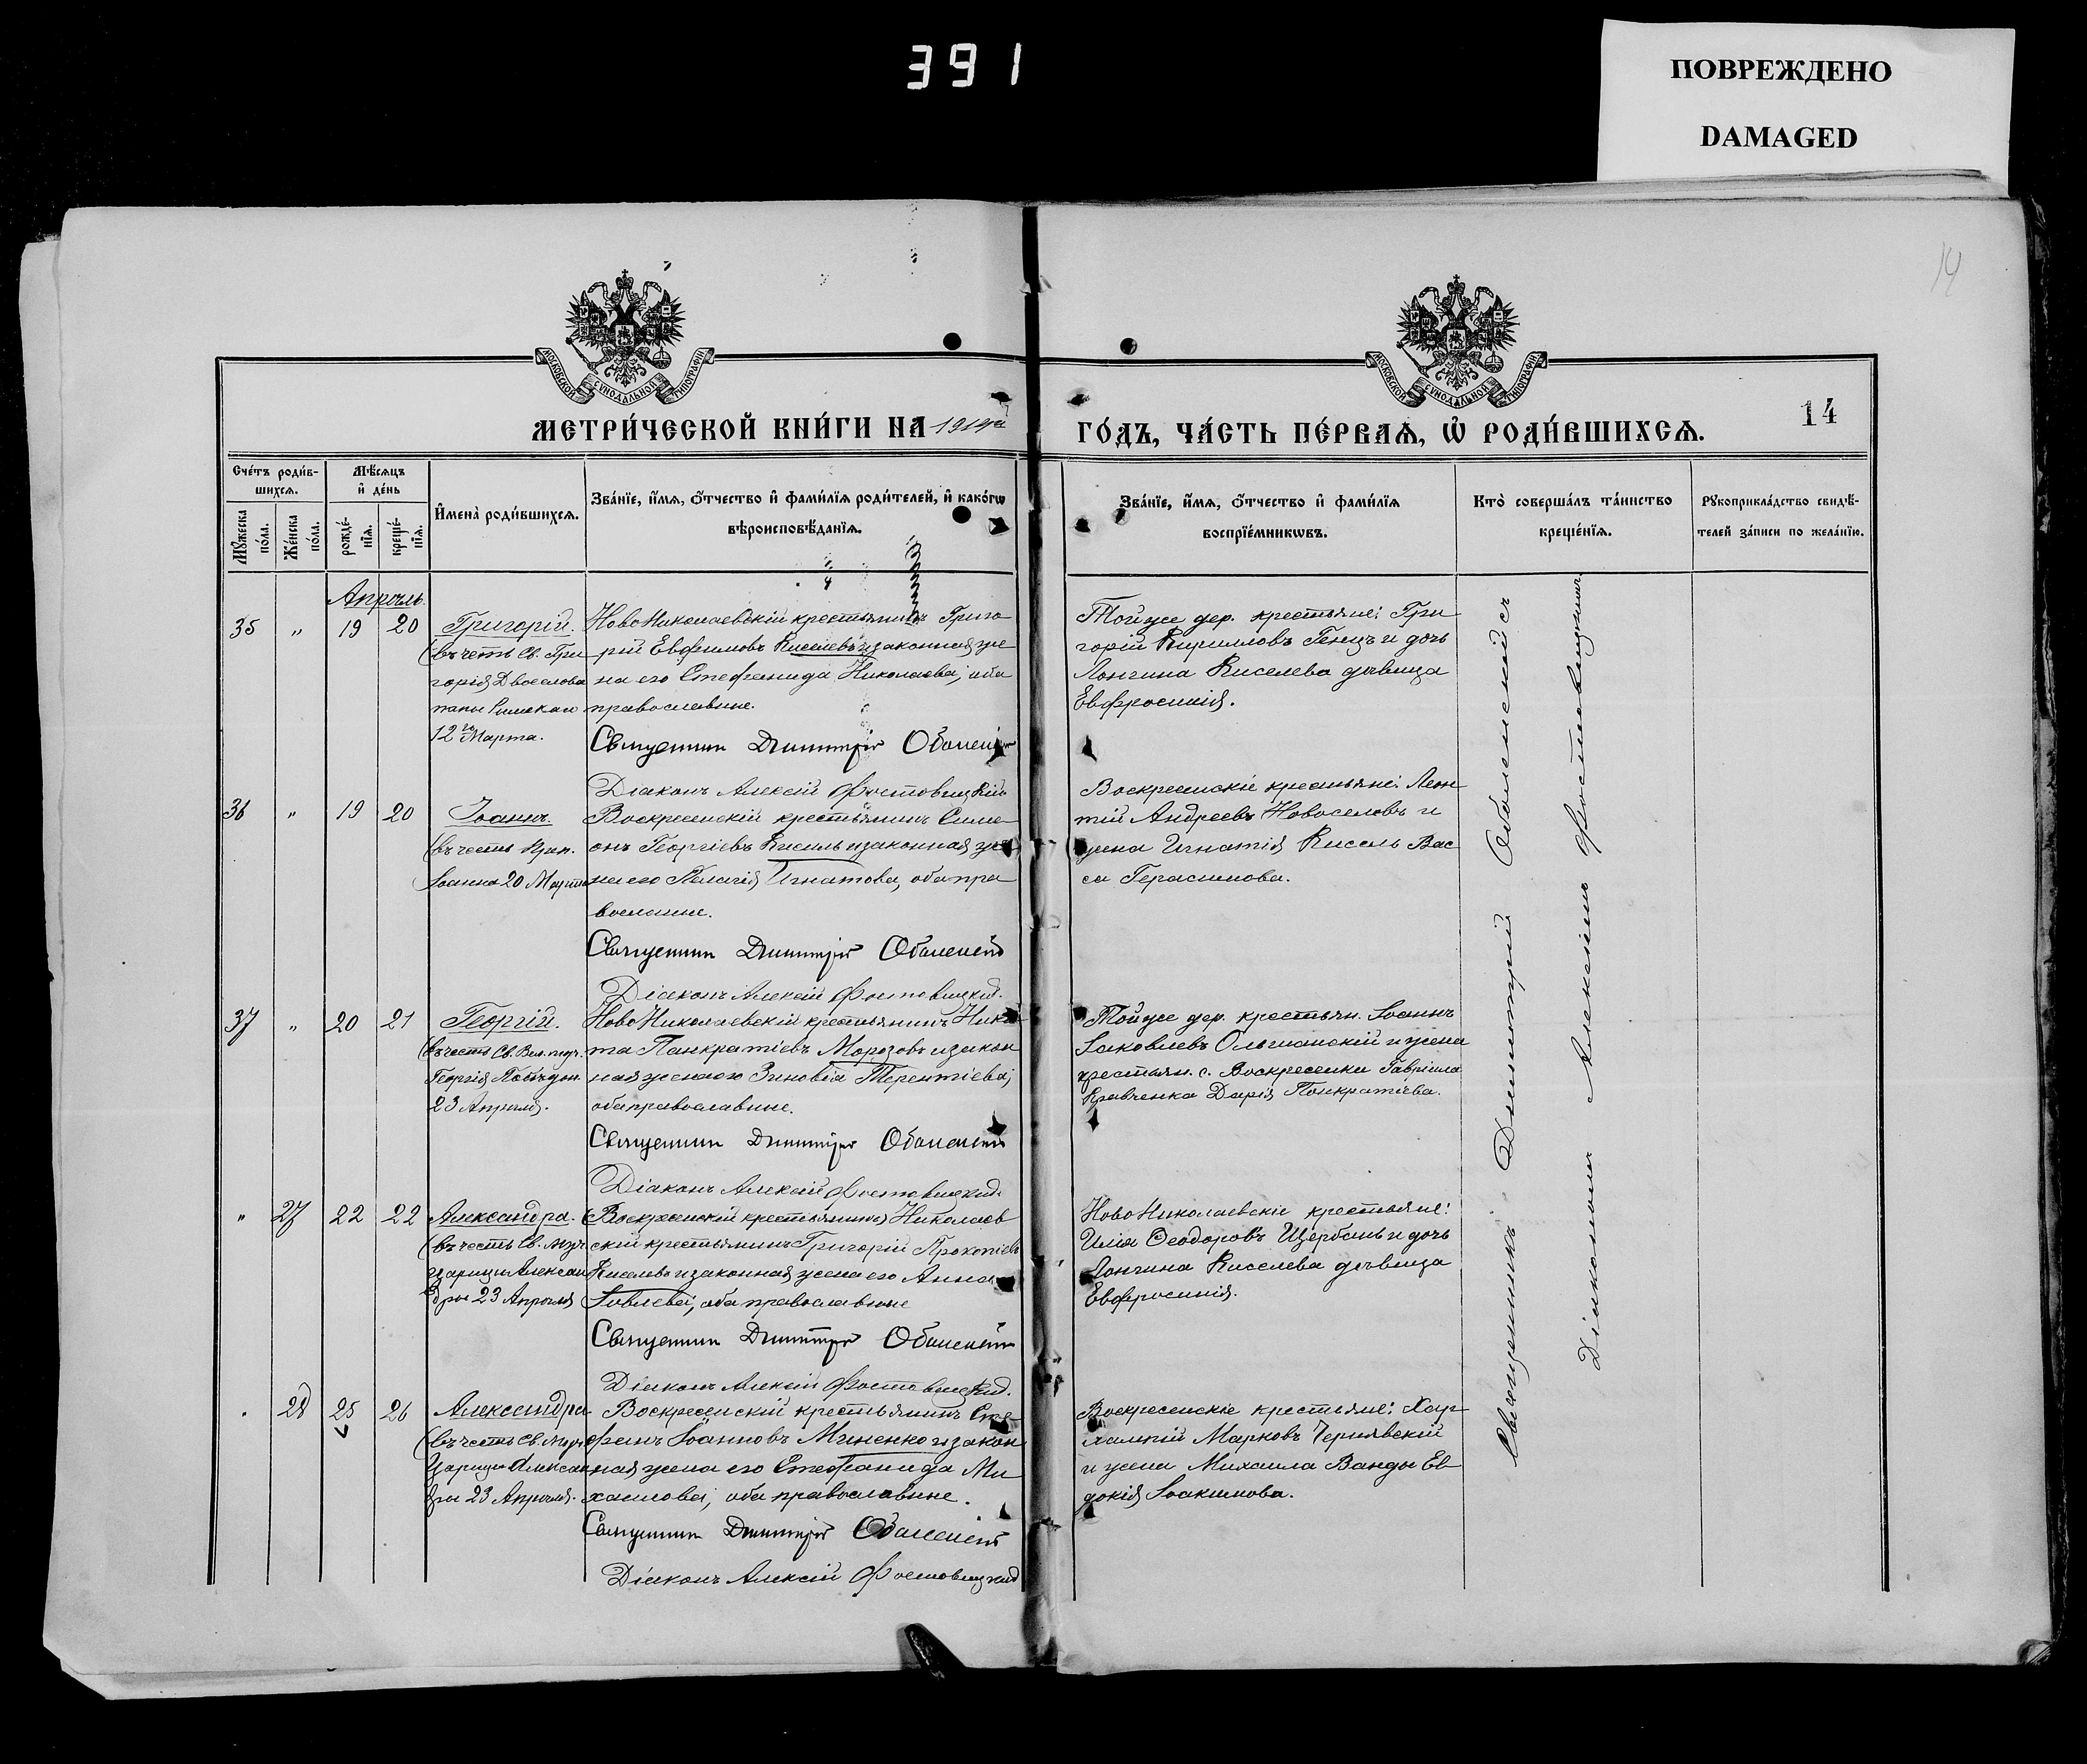 391
ПОВРЕЖДЕНО
DAMAGED
14
МОСКОВСКОЙ СѴНОДАЛЬНОЙ ТИПОГРАФІИ
МОСКОВСКОЙ СѴНОДАЛЬНОЙ ТИПОГРАФІИ
МЕТРИ́ЧЕСКОЙ КНИ́ГИ НА
ГО́ДЪ, ЧА́СТЬ ПЕ́РВАѦ, Ѽ РОДИ́ВШИХСѦ.
14
Сче́тъ роди́в-
шихсѧ.
Мѣ́сѧцъ
и҆ де́нь
И҆мена̀ роди́вшихсѧ.
Зва́нїе, и҆́мѧ, ѻ҆́тчество и҆ фами́лїѧ роди́телей, и҆ како́гѡ
вѣроисповѣ́данїѧ.
Зва́нїе, и҆́мѧ, ѻ҆́тчество и҆ фами́лїѧ
воспрїе́мникѡвъ.
Кто̀ соверша́лъ та́инство
креще́нїѧ.
Рꙋкоприкла́дство свидѣ́-
телей за́писи по жела́нїю.
Мꙋ́жеска
по́ла.
Же́нска
по́ла.
рожде́-
нїѧ.
креще́-
нїѧ.
Апрѣль.
35 " 19 20
Григорій.
(въ честь Св. Гри
горія Двоеслова
папы Римскаго
12го Марта.
НовоНиколаевскій крестьянинъ Григо
рій Евфимовъ Киселевъ и законная же
на его Стефанида Николаева, оба
православные.
Священникъ Димитрій Оболенскій
Діаконъ Алексій Фостовицкій
Тойже дер. крестьяне: Гри
горій Кирилловъ Генцъ и дочь
Лонгина Киселева дѣвица
Евфросинія.
36 " 19 20
Іоаннъ.
(въ честь Преп.
Іоанна 20 Марта
Воскресенскій крестьянинъ Симе
онъ Георгіевъ Кисиль и законная же
на его Пелагія Игнатова, оба пра
вославные.
Священникъ Димитрій Оболенскій
Діаконъ Алексій Фостовицкій.
Воскресенскіе крестьяне: Леон
тій Андреевъ Новоселовъ и
жена Игнатія Кисель Вас
са Герасимова.
37 " 20 21
Георгій.
(въ честь Св. Вел. муч.
Георгія Побѣдон.
23 Апрѣля.
НовоНиколаевскій крестьянинъ Ники
та Панкратіевъ Морозовъ и закон
ная жена его Зиновія Терентіева,
оба православные.
Священникъ Димитрій Оболенскій
Діаконъ Алексій Фостовицкій.
Тойже дер. крестьян. Іоаннъ
Іаковлевъ Ольшанскій и жена
крестьян. с. Воскресенки Гавріила
Кравченка Дарія Понкратіева.
" 27 22 22
Александра.
(въ честь Св. муч
царицы Алексан
дры 23 Апрѣля
(Воскресенскій крестьянинъ) Николаев
скій крестьянинъ Григорій Прокопіевъ
Киселевъ и законная жена его Анна
Іовлева, оба православные
Священникъ Димитрій Оболенскій
Діаконъ Алексій Фостовицкій.
НовоНиколаевскіе крестьяне:
Илія Ѳеодоровъ Щербань и дочь
Лонгина Киселева дѣвица
Евфросинія.
28 25 26
Александра
(въ честь Св. муч
Царицы Алексан
дры 23 Апрѣля.
Воскресенскій крестьянинъ Сте
фанъ Іоанновъ Миненко и закон
ная жена его Стефанида Ми
хаилова, оба православные.
Священникъ Димитрій Оболенскій
Діаконъ Алексій Фостовицкій
Воскресенскіе крестьяне: Хар
лампій Марковъ Чернявскій
и жена Михаила Ванды Ев
докія Іоакимова.
Священникъ Димитрій Оболенскій съ
Діакономъ Алексіемъ Фостовицкимъ.